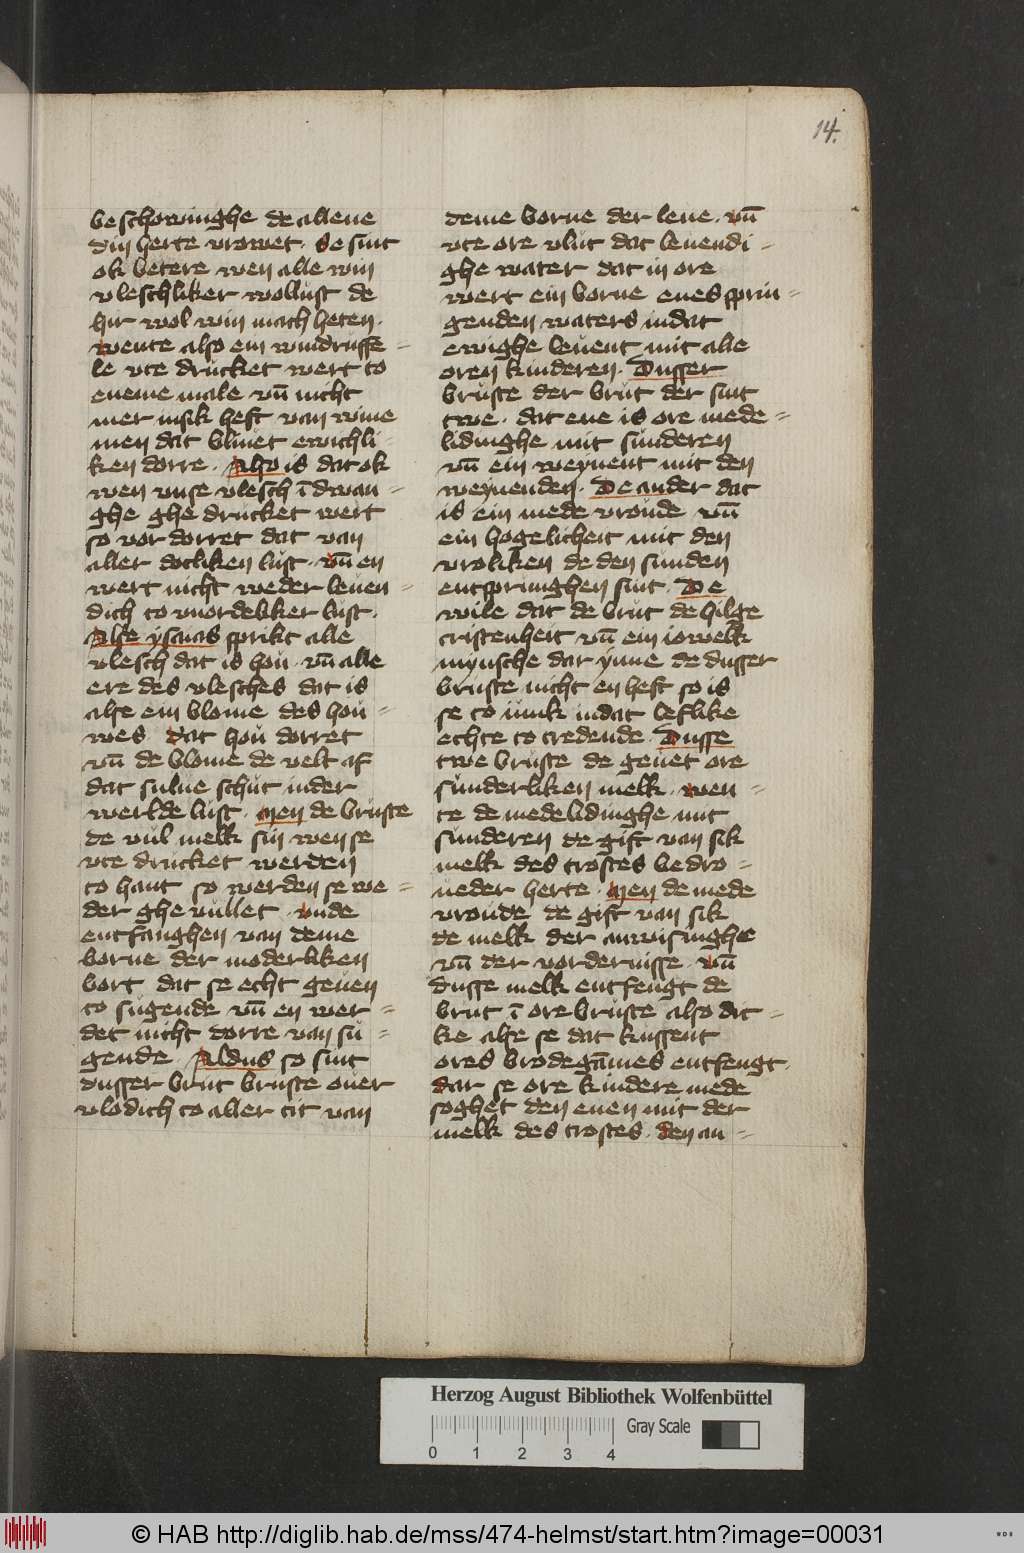 14.
beschowinghe de allene
din herte vrowet. Se sint
ok betere wen alle win
vleschliker wollust de
hir wol win mach heten.
wente also ein windruffe=
le vte drucket wert to
eneme male vn̄ nicht
mer insik heft van wine
men dat bliuet ewichli-
ken dorre. Also is dat ok
wen vnse vlesch ī dwan=
ghe ghe drucket wert
so vor dorret dat van
aller dotliken lust. vn̄ en
wert nicht weder leuen=
dich to vnordelker lust.
Alse ysaias sprikt alle
vlesch dat is hou. vn̄ alle
ere des vlesches dat is
alse ein blome des hou=
wes. dat hou dorret
vn̄ de blome de velt af
dat sulue schut inder
werlde lust. Men de bruste
de vul melk sin wen se
vte drucket werden
to hant so werden se we=
der ghe vullet. vnde
entfanghen van deme
borne der moderliken
bort dat se echt geuen
to sugende vn̄ en wer=
det nicht dorre van su=
gende. Aldus so sint
dusser brut bruste ouer
vlodich to aller tit van
deme borne der leue. vn̄
vte ore vlut dat leuendi=
ghe water dat in ore
wert ein borne enes sprin=
genden waters indat
ewighe leuent mit alle
oren kinderen. Dusser
bruste der brut der sint
twe. dat ene is ore mede=
lidinghe mit sunderen
vn̄ ein weynent mit den
weynenden. De ander dat
is ein mede vroude vn̄
ein hogelicheit mit den
vroliken de den sunden
entspringhen sint. De
wile dat de brut de hilge
cristenheit vn̄ ein iowelk
mynsche dar ynne de dusser
bruste nicht en heft so is
se to iunk indat leflike
echte to tredende. Dusse
twe bruste de geuet ore
sunderliken melk. wen=
te de medelidinghe mit
sunderen de gift van sik
melk des trostes bedro=
ueder herte. Men de mede
vroude de gift van sik
de melk der anwisinghe
vn̄ der vordernisse. vn̄
dusse melk entfengt de
brut ī ore bruste also dic=
ke alse se dat kussent
ores brodegāmes entfengt.
dar se ore kindere mede
soghet den enen mit der
melk des trostes. den an=
Herzog August Bibliothek Wolfenbüttel
Gray Scale
0 1 2 3 4
© HAB http://diglib.hab.de/mss/474-helmst/start.htm?image=00031